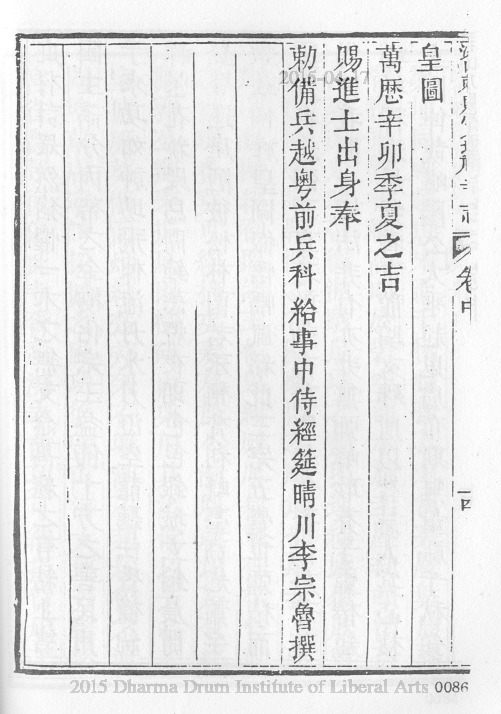 皇圖
萬厯辛卯季夏之吉
賜進士出身奉
勅備兵越粤前兵科給事中侍經筵晴川李宗魯撰
卷中
十四
2015-04-17
2015 Dharma Drum Institute of Liberal Arts 0086